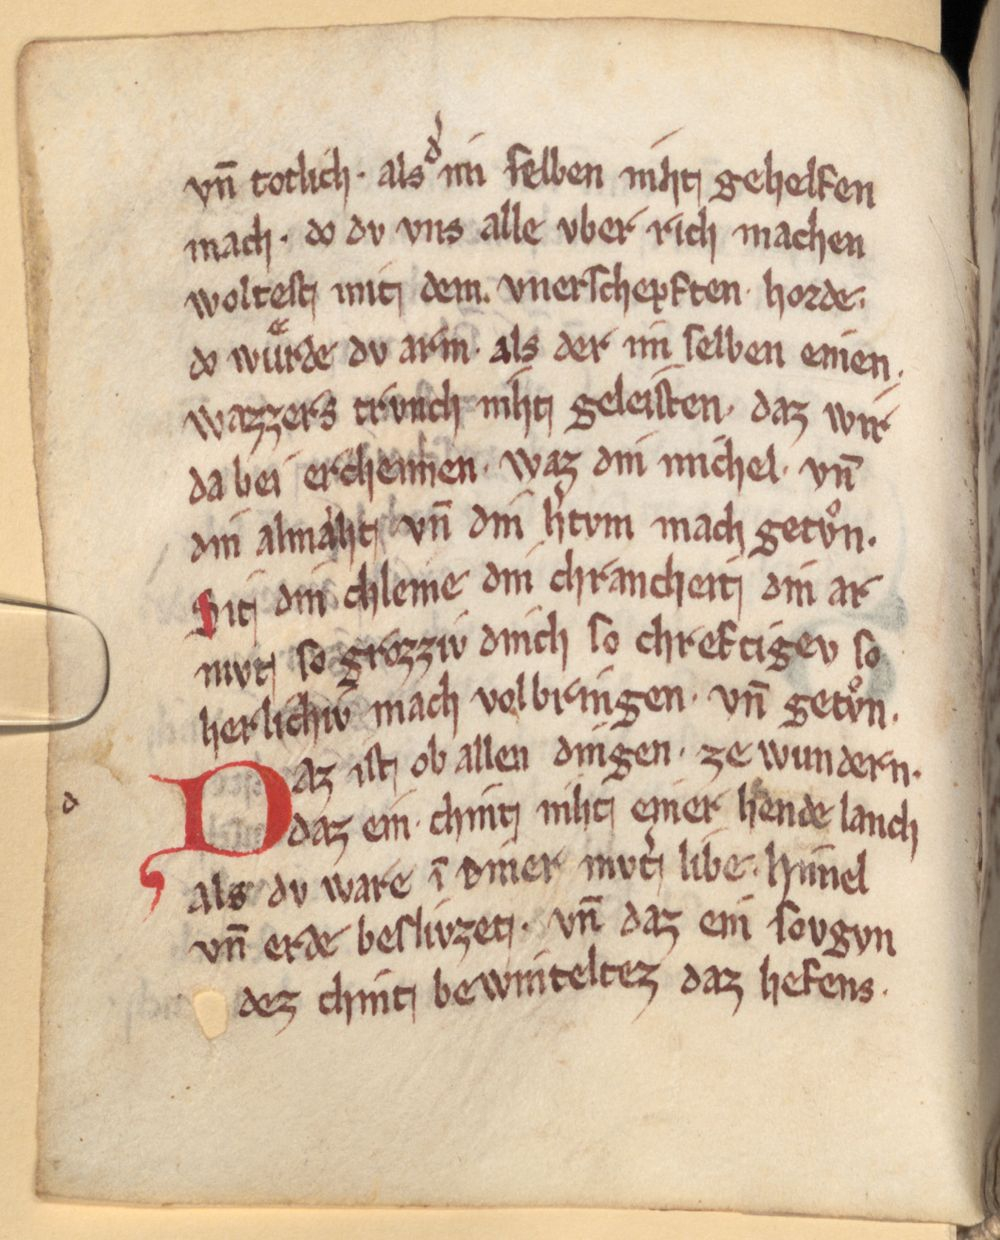 vn̄ totlich · als d' im selben niht gehelfen
mach · do dv vns alle vber rich machen
woltest mit dem vnerschepften horde ·
do wuͤrde dv arm · als der im selben einen
wazzers trvnch niht geleisten · daz wir
da bei erchennen · waz din michel · vn̄
din almaht vn̄ din h'tvm mach getvͦn ·
Sit din chleine din chrancheit din ar
mvt so grozziv dinch so chreftigev so
herlichiv mach volbringen · vn̄ getvͦn ·
Daz ist ob allen dingen · ze wundern ·
d
daz ein chint niht einer hende lanch
als dv ware ī diner mvt' libe · himel
vn̄ erde beslivzet · vn̄ daz ein sovgvn
dez chint bewinteltez daz hefens ·